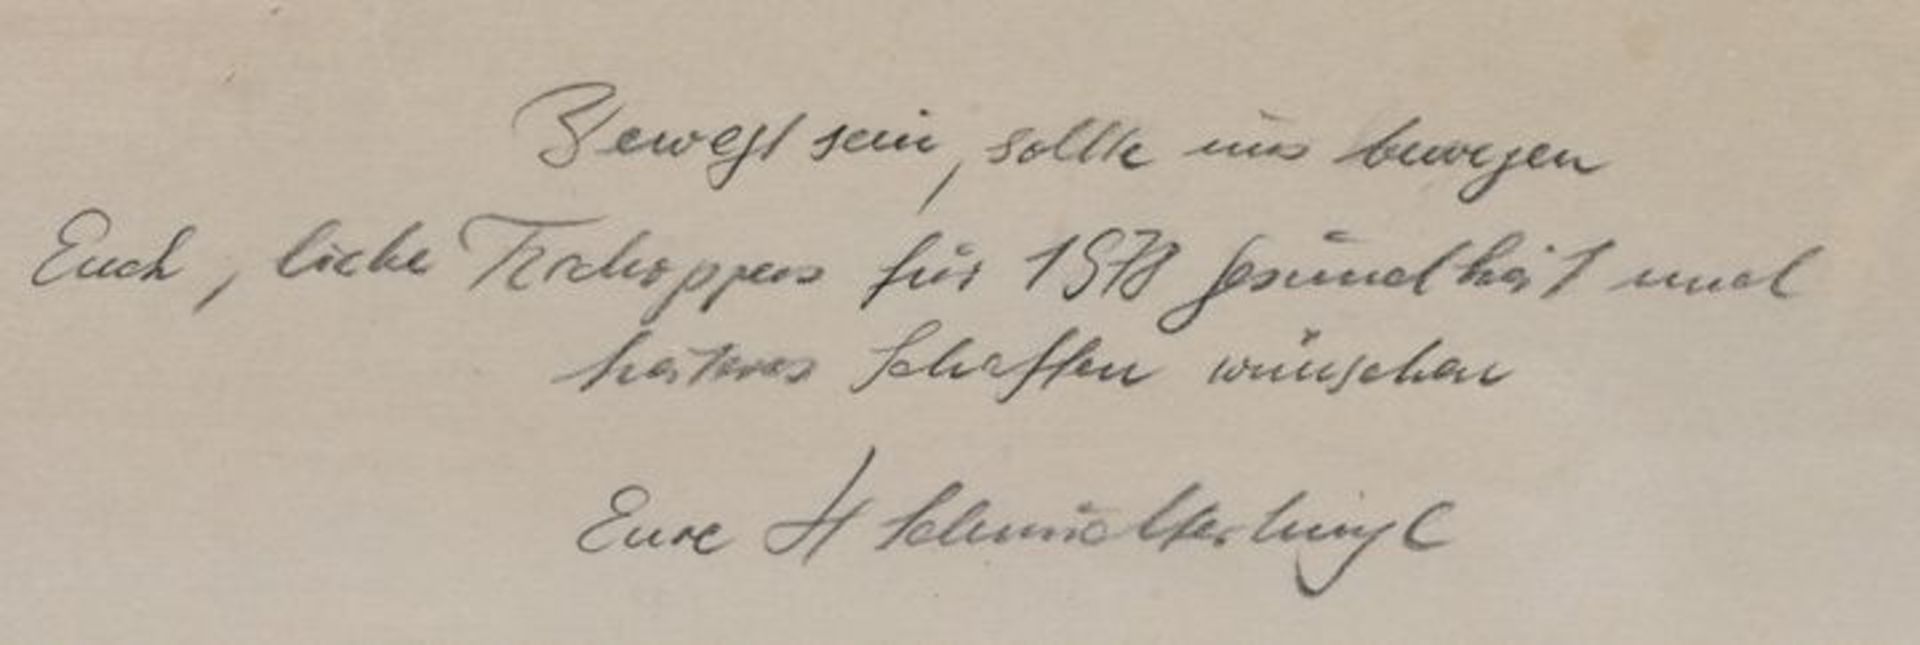 Bewegt sein, sollte uns bewegen
Euch, liebe für 1978 Gesundheit und
heiteres Schaffen wünschen
Eure H